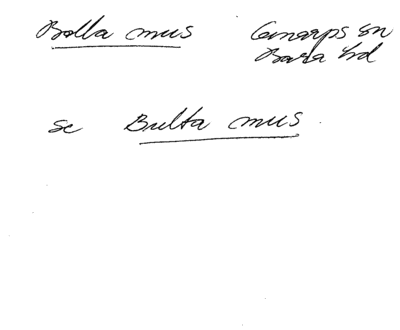 Bolla mus Genarps sn
Bara hd
se Bulta mus